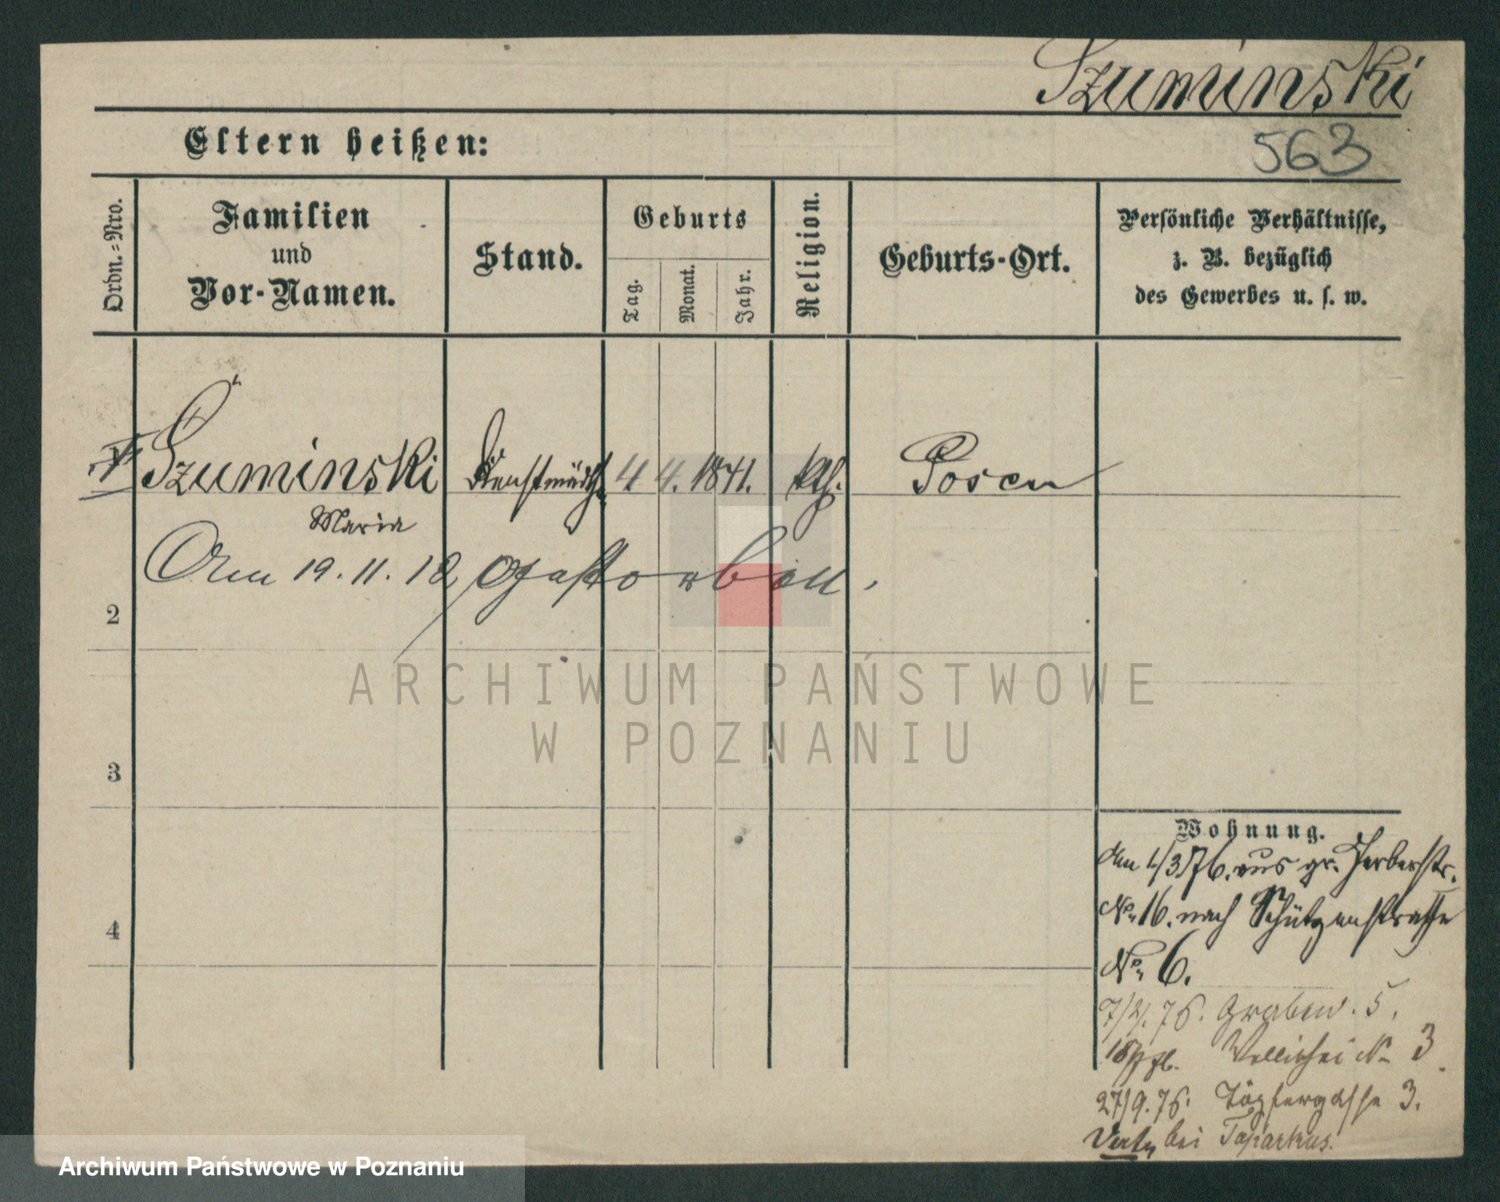 Szuminski
Eltern heißen:
563
Ordn.=Nro.
Familien
und
Vor-Namen.
Stand.
Geburts
Tag.
Monat.
Jahr.
Religion.
Geburts-Ort.
Persönliche Verhältnisse,
z. B. bezüglich
des Gewerbes u. s. w.
Szuminski
Maria
4 4. 1841.
kth.
Posen
Am 19. 11. 18 gestorben.
2
3
4
Wohnung.
Am 1/3 76. aus gr. Gerberstr.
No. 16. nach Schützenstrasse
No. 6.
76. Graben. 5.
No 3
27/9. 76. Töpfergasse 3.
bei
ARCHIWUM PAŃSTWOWE
W POZNANIU
Archiwum Państwowe w Poznaniu